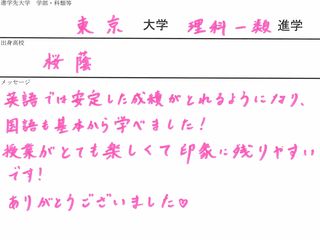 進学先大学　学部・科類等
東京 大学 理科一類 進学
出身高校
桜蔭
メッセージ
英語では安定した成績がとれるようになり、
国語も基本から学べました!
授業がとても楽しくて印象に残りやすい
です!
ありがとうございました♡